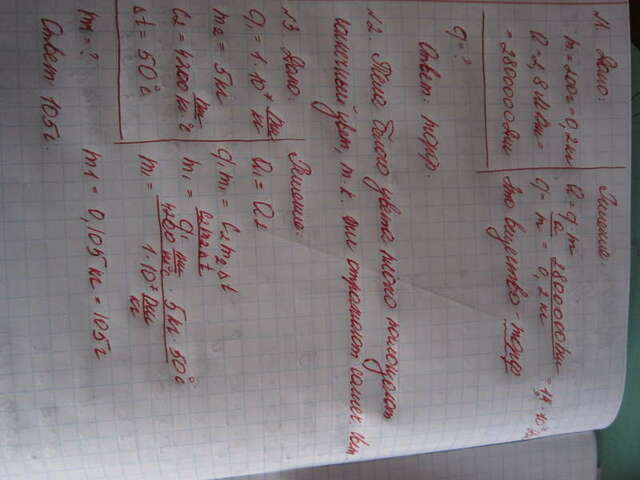 №1. Дано:
m = 200г = 0,2кг
Q = 2,8 МДж =
= 2800000Дж
q = ?
Решение:
Q = q m
q = Q/m = 2800000Дж / 0,2кг = 1,4 · 10⁷
Это вещество - торф
Ответ: торф.
№2. Тела белого цвета плохо
солнечный цвет, т.к. они отражают солнеч.
№3. Дано:
q₁ = 1 · 10⁷ Дж/кг
m₂ = 5 кг
c₂ = 4200 Дж/кг°c
Δt = 50°c
m₁ = ?
Решение:
Q₁ = Q₂
q₁m₁ = c₂m₂Δt
m₁ = c₂m₂Δt / q₁
m₁ = 4200 Дж/кг°c · 5кг · 50°c / 1·10⁷ Дж/кг
m1 = 0,105 кг = 105г
Ответ 105г.